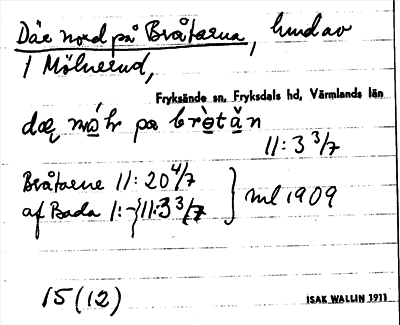 Där nord på Bråtarna, hund av
1 Mölnerud,
Fryksände sn, Fryksdals hd, Värmlands län
11: 3 3/7
Bråtarne 11: 20 4/7
af Bada 1:- 11:3 3/7 } ml 1909
15 (12)
ISAK WALLIN 1911